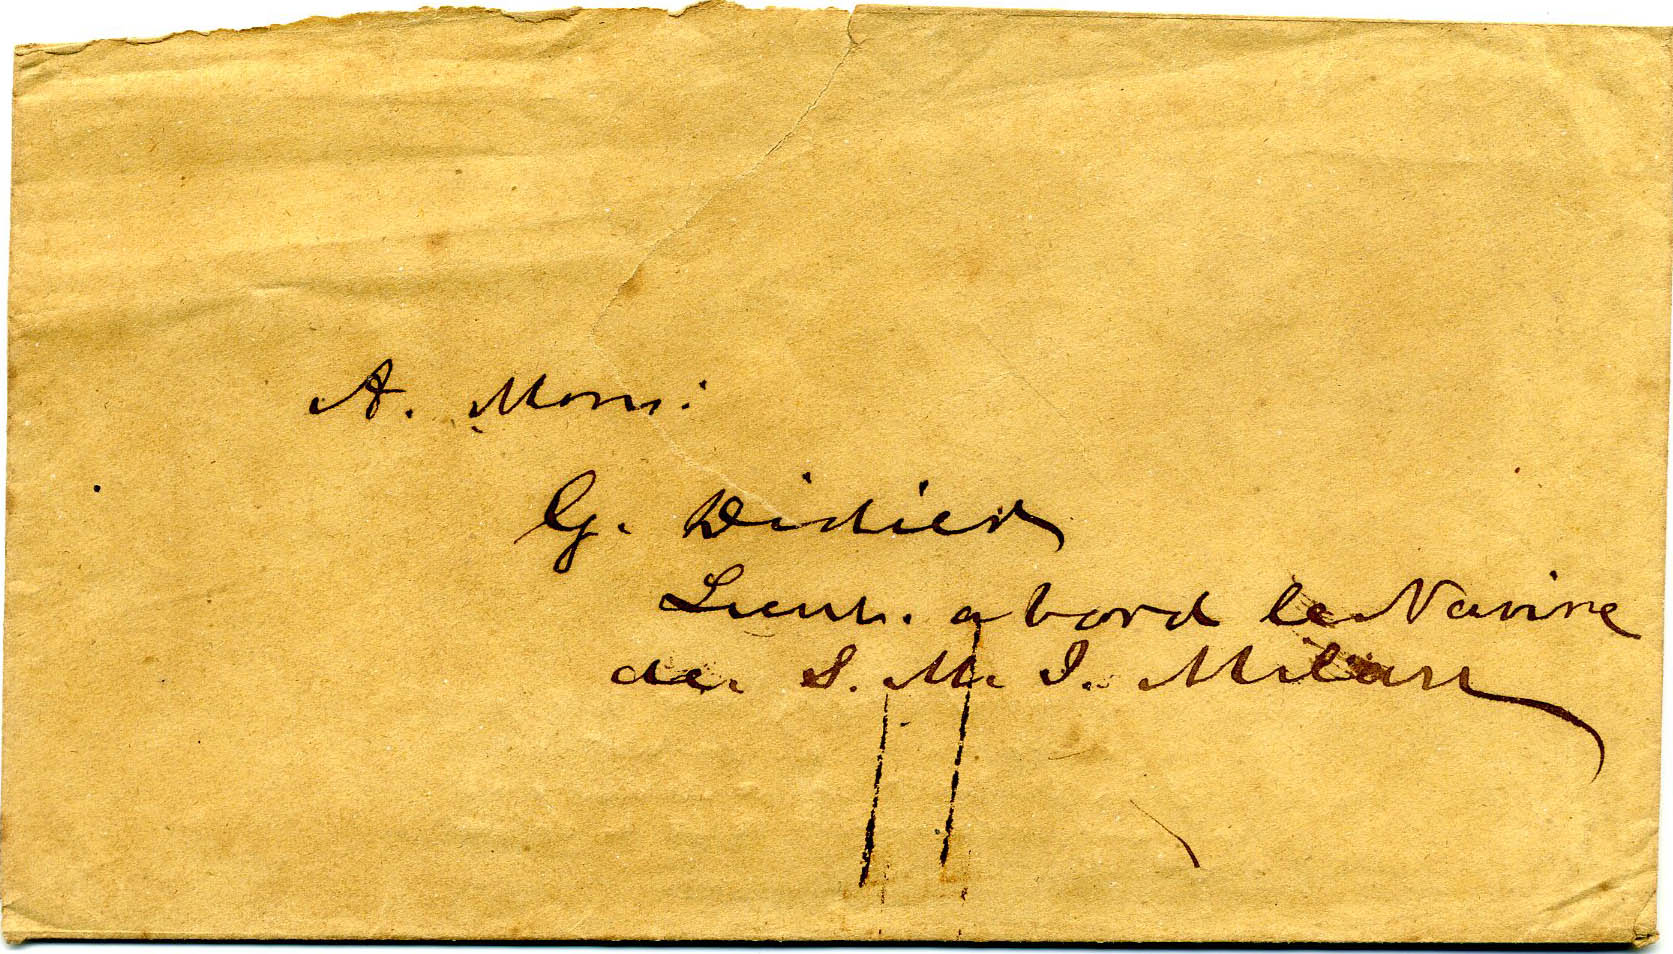 A. Mons:
G. Didier
Lieut. a bord le Navire
de. S. M. I. Milan